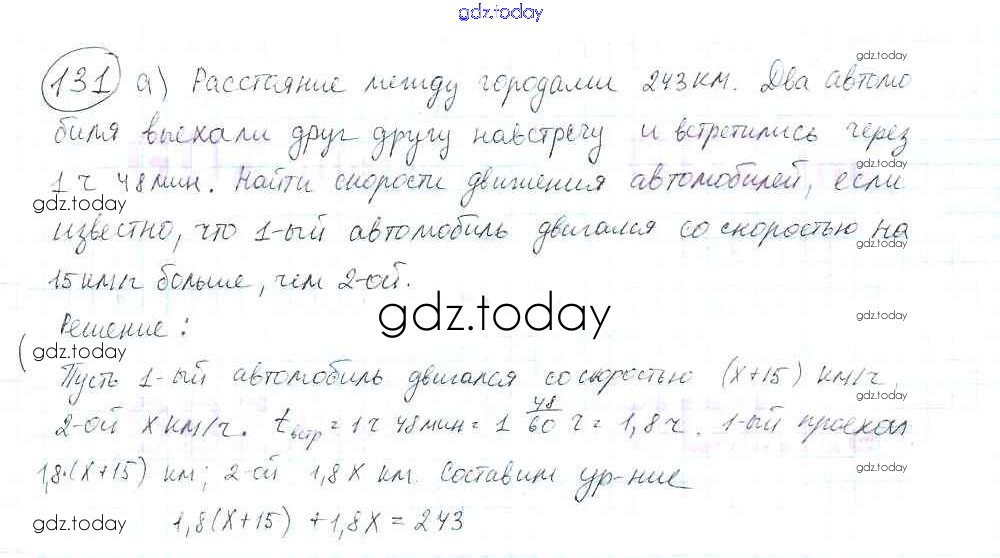 gdz.today
gdz.today
131 а) Расстояние между городами 243 км. Два автомо
gdz.today
биля выехали друг другу навстречу и встретились через
gdz.today
1 ч 48 мин. Найти скорости движения автомобилей, если
gdz.today
известно, что 1-ый автомобиль двигался со скоростью на
gdz.today
15 км/ч больше, чем 2-ой.
gdz.today
gdz.today
Решение:
gdz.today
Пусть 1-ый автомобиль двигался со скоростью (х+15) км/ч,
gdz.today
2-ой х км/ч. tвстр = 1 ч 48 мин = 1 48/60 ч = 1,8 ч. 1-ый проехал
gdz.today
1,8·(х+15) км; 2-ой 1,8х км. Составим ур-ние
gdz.today
1,8(х+15) + 1,8х = 243
gdz.today